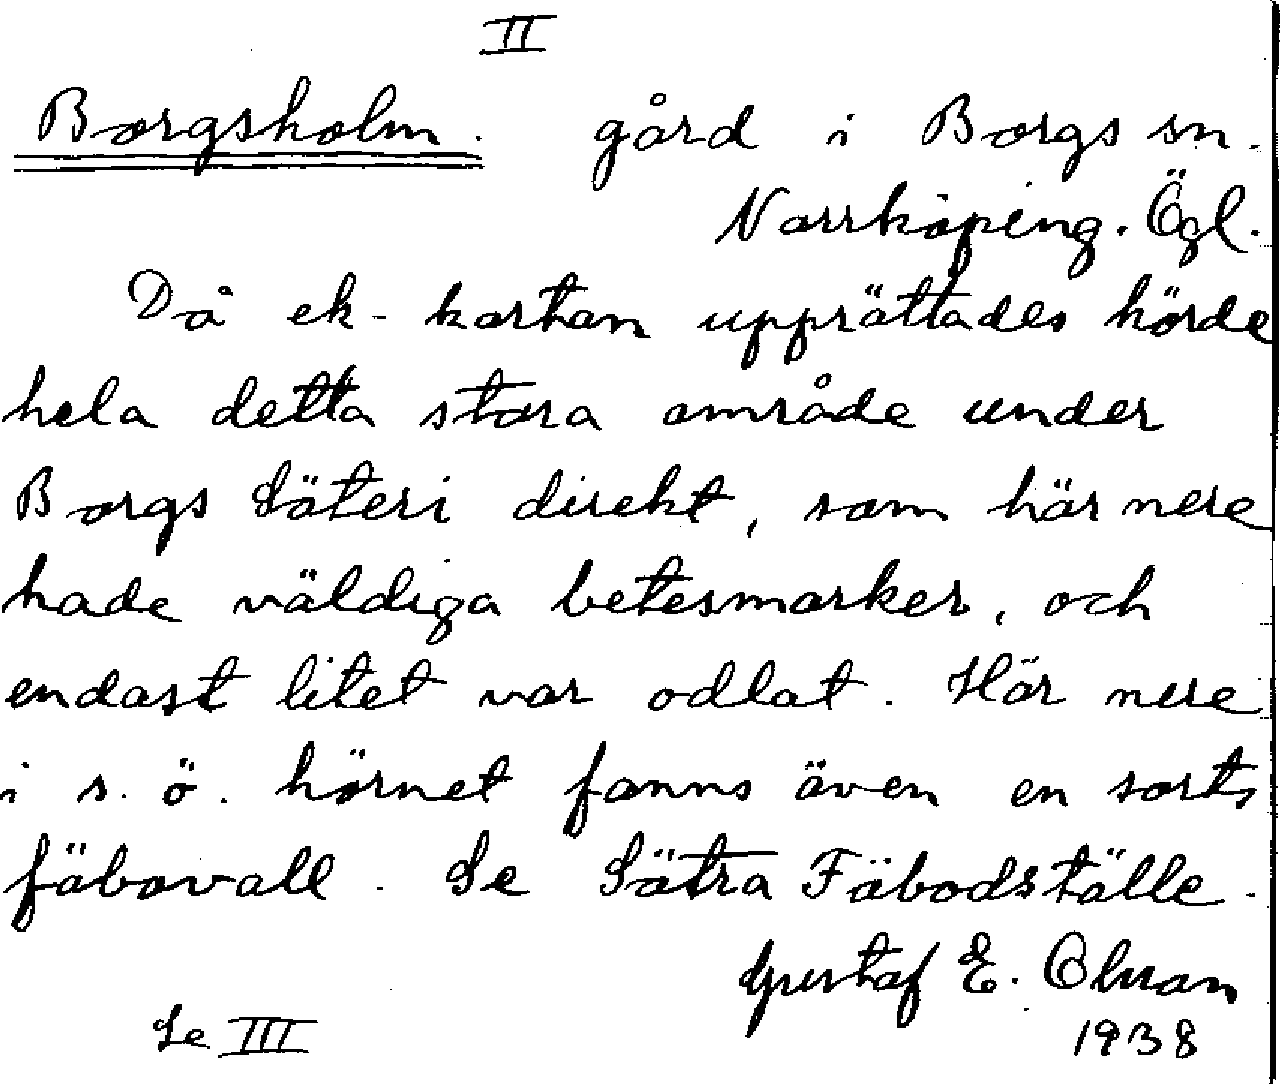 II
Borgsholm. gård i Borgs sn.
Norrköping. Ögl.
Då ek-kartan upprättades hörde
hela detta stora område under
Borgs Säteri direkt, som här nere
hade väldiga betesmarker, och
endast litet var odlat. Här nere
i s. ö. hörnet fanns även en sorts
fäbovall. Se Sätra Fäbodställe.
Gustaf E. Olsson
Se III 1938